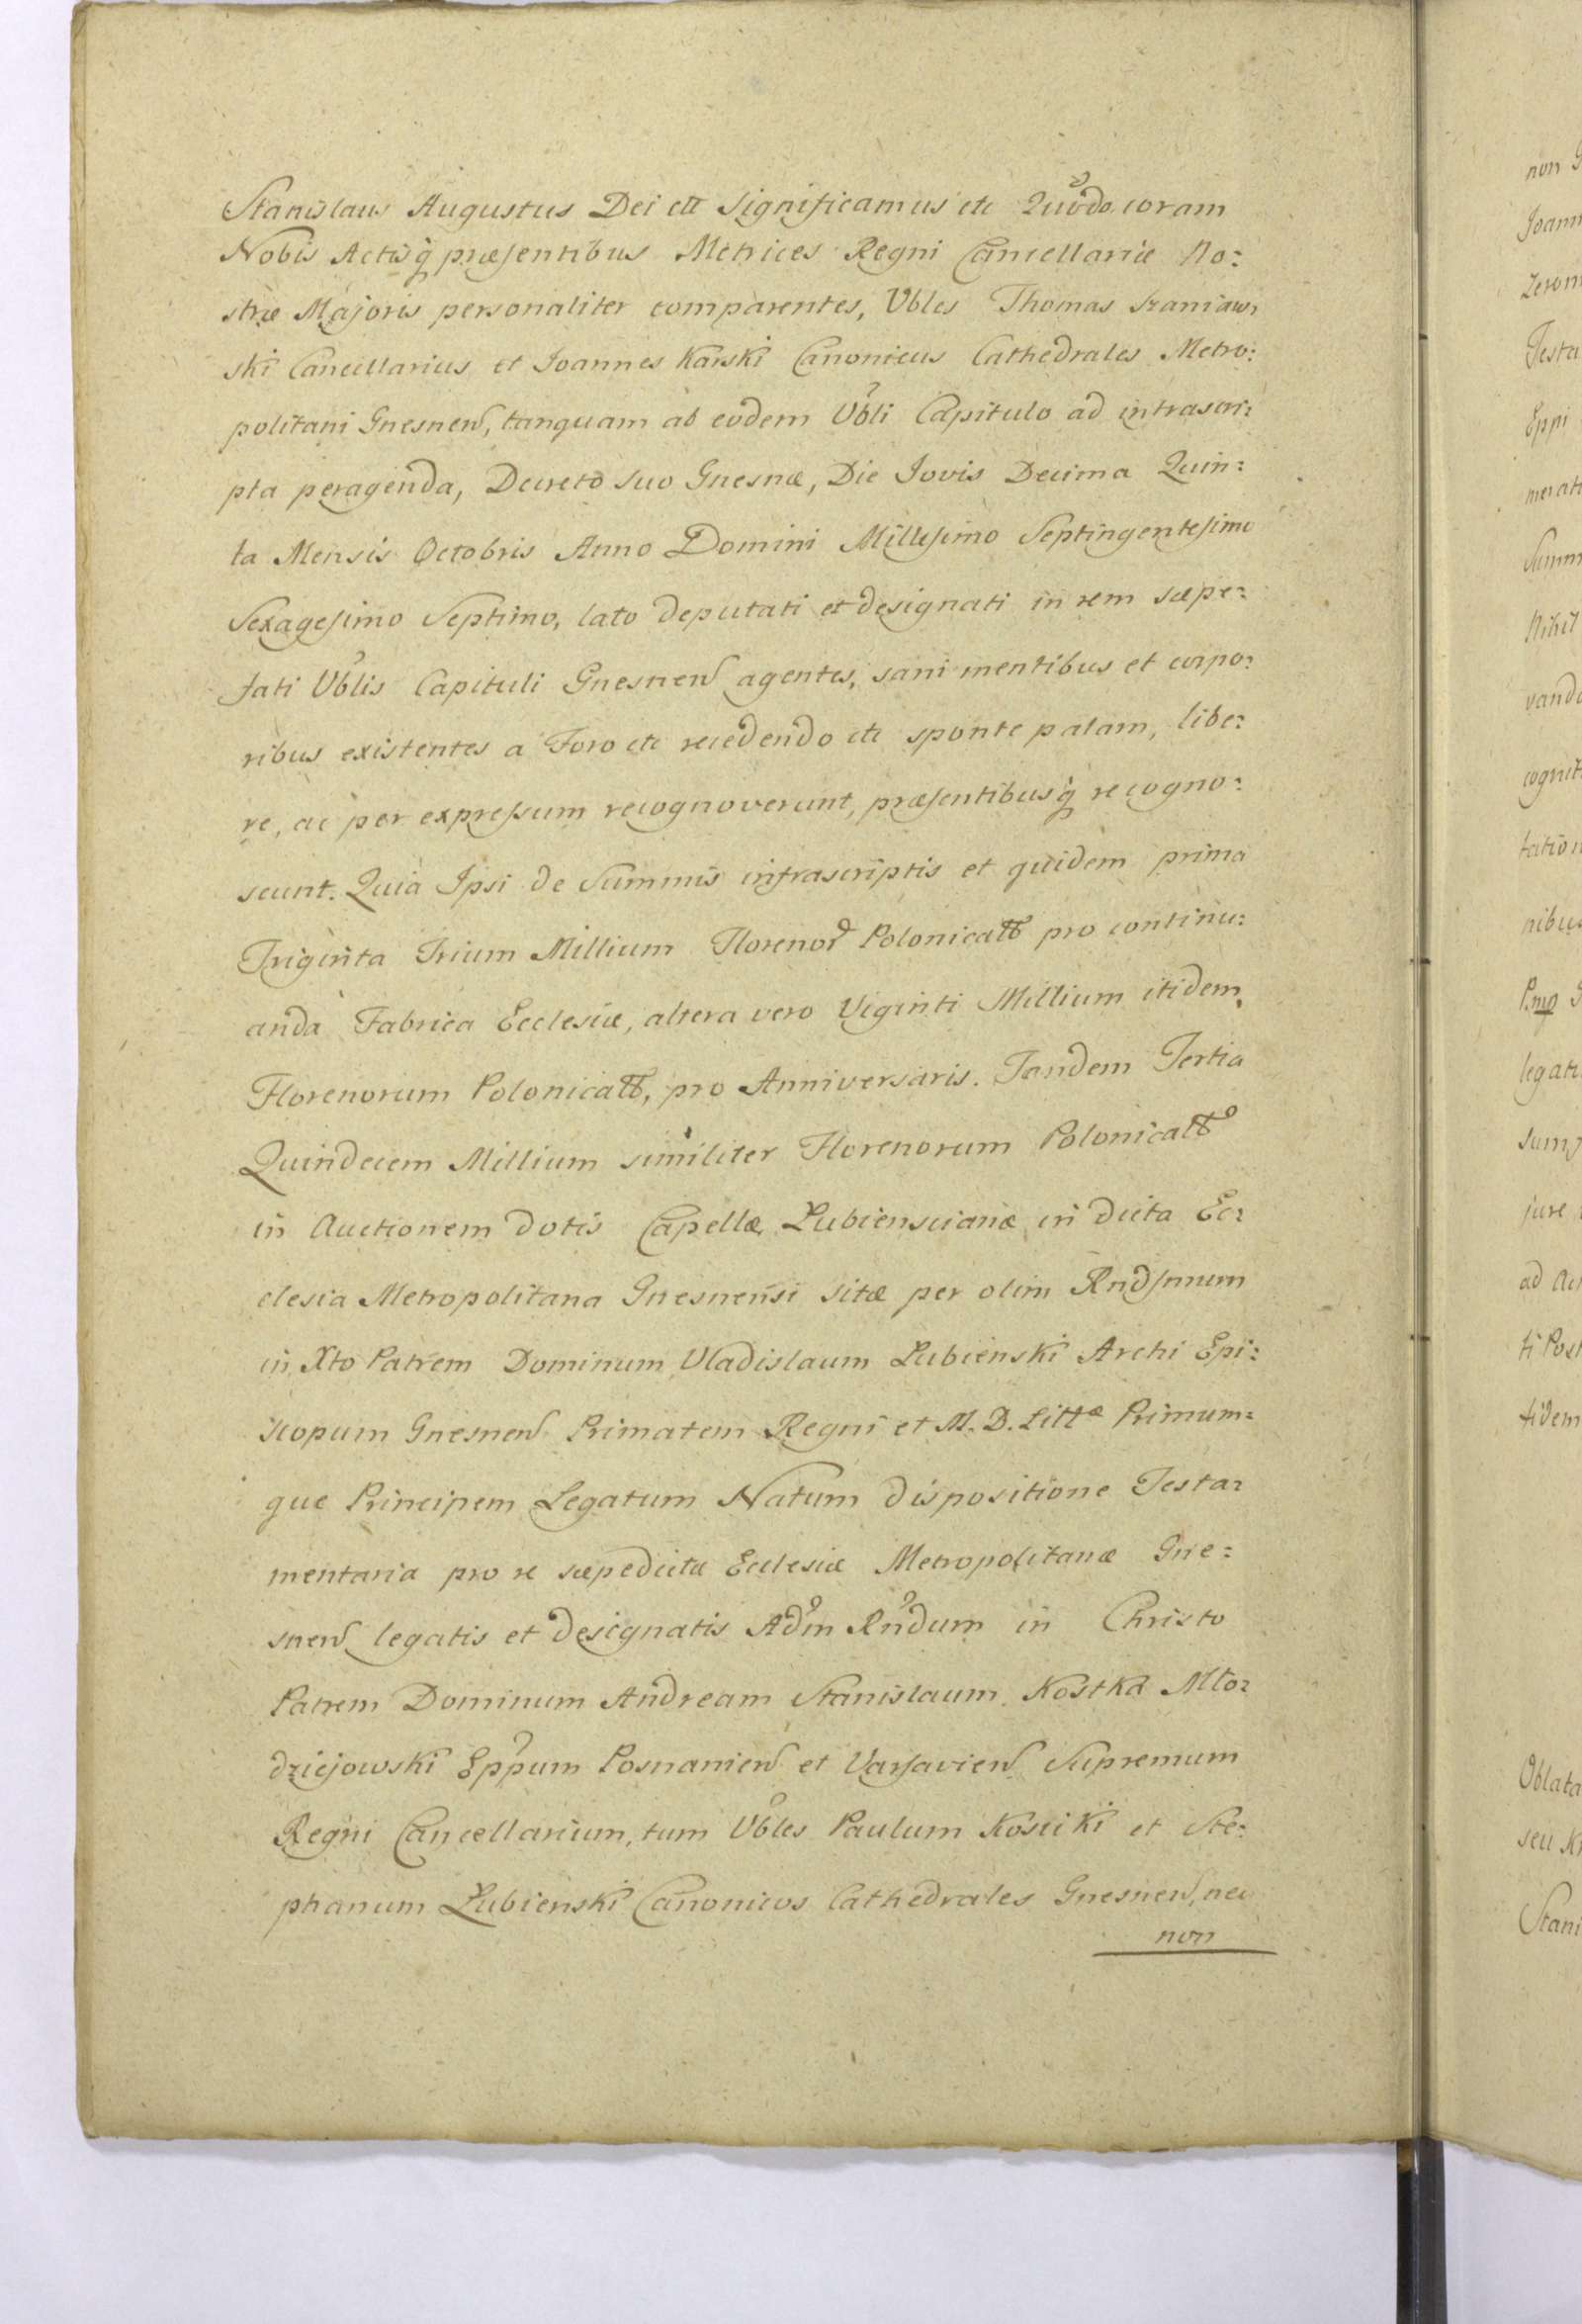 Stanislaus Augustus Dei ett significamus etc Quodo coram
Nobis Actisq præsentibus Metrices Regni Cancellariæ No:
stræ Majoris personaliter comparentes, Vbles Thomas Szaniaw,
ski Cancellarius et Joannes Karski Canonicus Cathedrales Metro:
politani Gnesnen, tanquam ab eodem Vbli Capitulo ad infrascri:
pta peragenda, Decreto suo Gnesnæ, Die Jovis Decima Quin:
ta Mensis Octobris Anno Domini Millesimo Septingentesimo
Sexagesimo Septimo, lato deputati et designati in rem sæpe:
fati Vblis Capituli Gnesnen agentes, sani mentibus et corpo:
ribus existentes a Foro etc recedendo etc sponte palam, libe:
re, ac per expressum recognoverunt, præsentibusq recogno:
scunt. Quia Ipsi de Summis infrascriptis et quidem prima
Triginta Trium Millium Florenor Polonicalt pro continu:
anda Fabrica Ecclesiæ, altera vero Viginti Millium itidem,
Florenorum Polonicalt, pro Anniversaris. Tandem Tertia
Quindecem Millium similiter Florenorum Polonicalt
in Auctionem dotis Capellæ Lubiensciana in dicta Ec:
clesia Metropolitana Gnesnensi sitæ per olim Rndsmum
in Xto Patrem Dominum Vladislaum Lubienski Archi Epi:
scopum Gnesnen Primatem Regni et M. D. Littæ Primum:
que Principem Legatum Natum dispositione Testa:
mentaria pro re sæpedictæ Ecclesiæ Metropolitanæ Gne:
snen legatis et designatis Adm Rndum in Christo
Patrem Dominum Andream Stanislaum Kostka Mło:
dziejowski Eppum Posnanien et Varsavien Supremum
Regni Cancellarium, tum Vbles Paulum Kosicki et Ste:
phanum Lubienski Canonicos Cathedrales Gnesnen, nec
non
non
Joann
Zerom
Testa
Eppi
merat
Summ
Nihil
vand
cognit
tation
nibus
Pmo
legat
jure
ad
ti Post
tidem
Oblata
seu
Stani